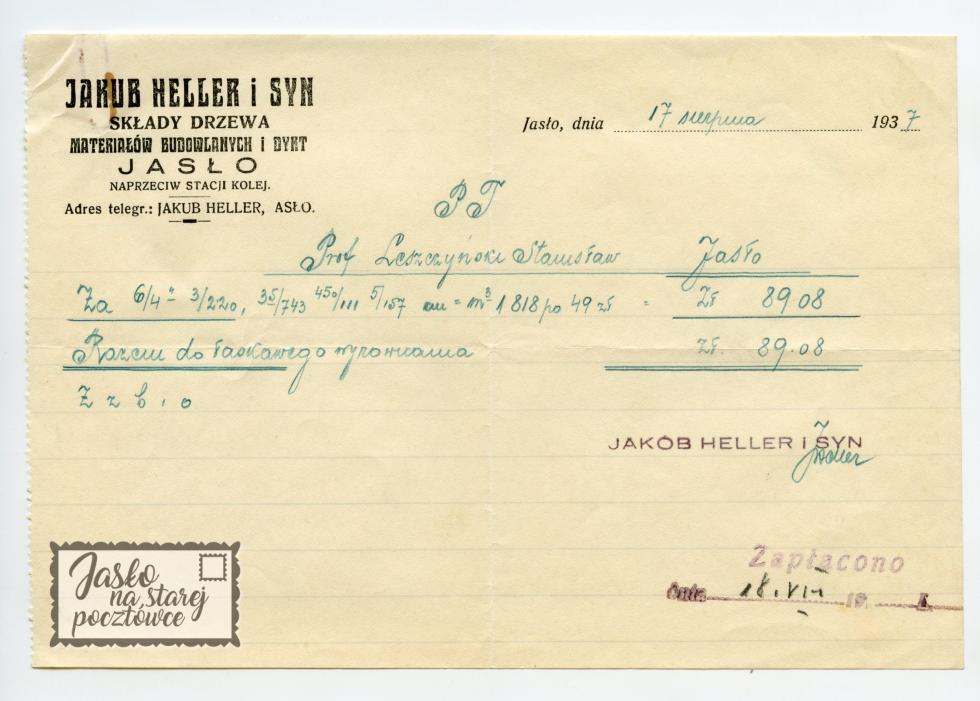 JAKUB HELLER i SYN
SKŁADY DRZEWA
MATERIAŁÓW BUDOWLANYCH I DYKT
JASŁO
NAPRZECIW STACJI KOLEJ.
Adres telegr.: JAKUB HELLER, ASŁO.
Jasło, dnia 17 sierpnia 1937
PT
Prof Leszczyński Stanisław Jasło
Za 6/4" 3/220, 35/743 450/111 5/157 = m³ 1818 po 49 zł = Zł 89.08
Razem do łaskawego wyrównania zł. 89.08
Z z b . o
JAKÓB HELLER i SYN
JHeller
Zapłacono
dnia 18.VII 19 r.
Jasło
na starej
pocztówce